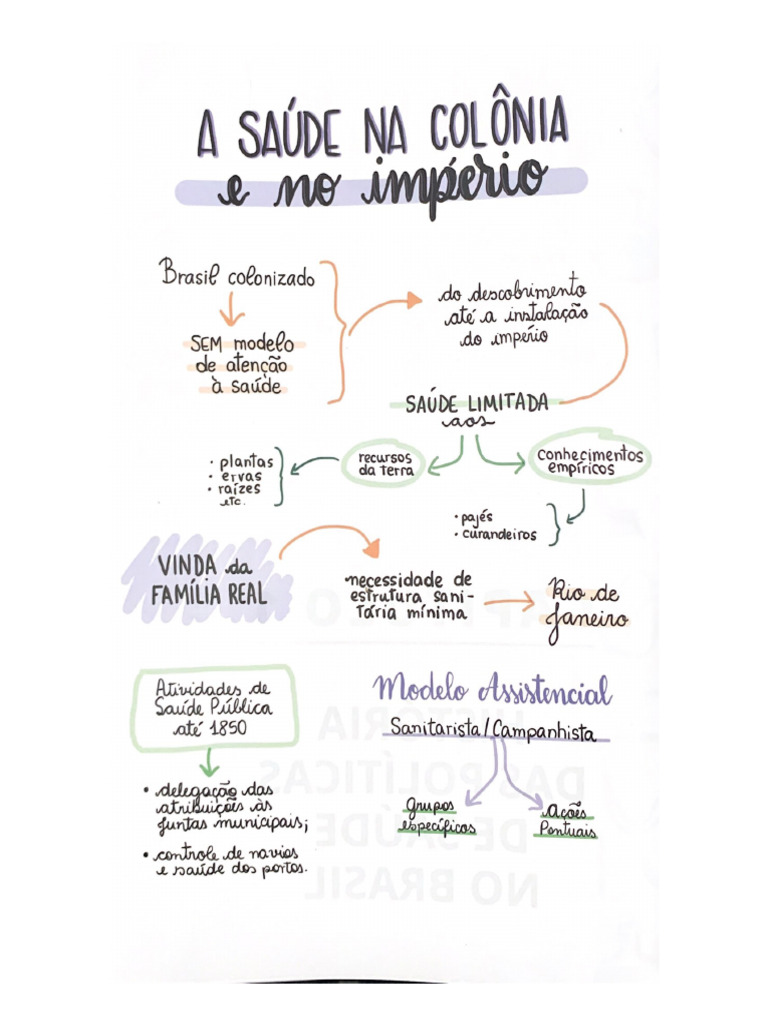 A SAÚDE NA COLÔNIA
e no império
Brasil colonizado
SEM modelo
de atenção
à saúde
do descobrimento
até a instalação
do império
SAÚDE LIMITADA
aos
recursos
da terra
• plantas
• ervas
• raízes
etc.
conhecimentos
empíricos
• pajés
• curandeiros
VINDA da
FAMÍLIA REAL
necessidade de
estrutura sani-
tária mínima
Rio de
Janeiro
Atividades de
Saúde Pública
até 1850
• delegação das
atribuições às
juntas municipais;
• controle de navios
e saúde dos portos.
Modelo Assistencial
Sanitarista/Campanhista
grupos
específicos
Ações
Pontuais
HISTÓRIA
DAS POLÍTICAS
DE SAÚDE
NO BRASIL